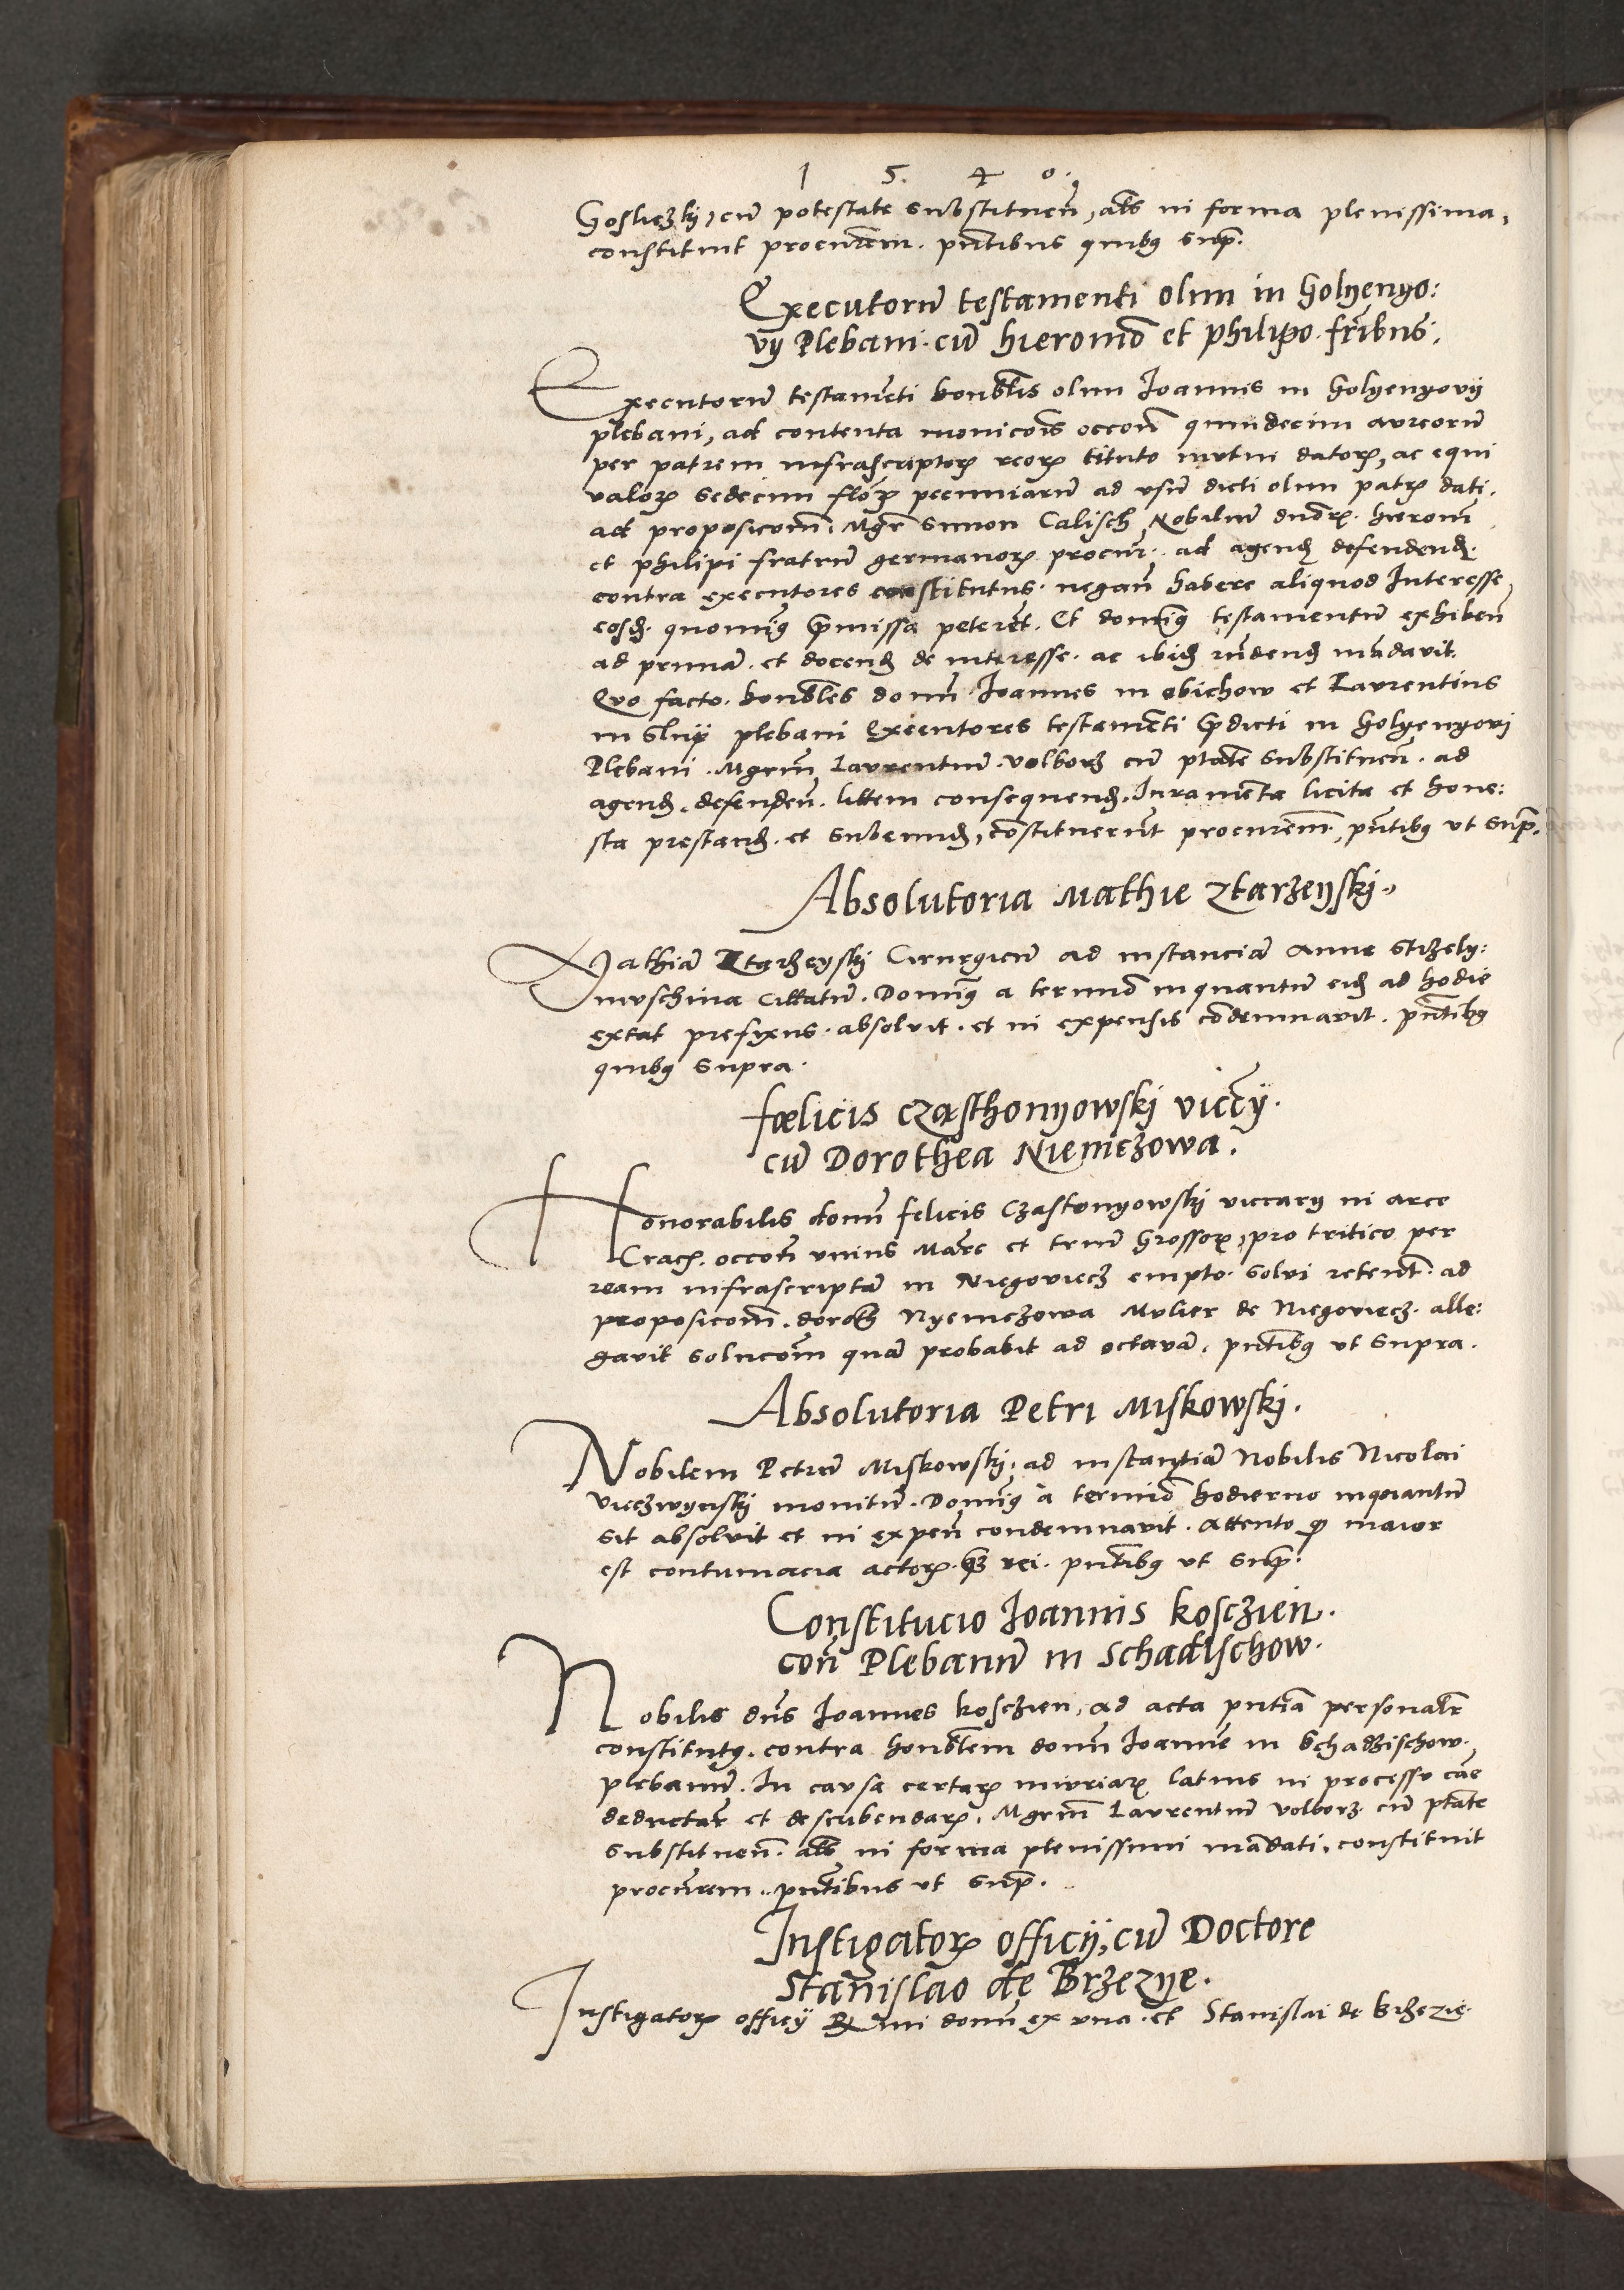 1 5. 4 0.
Gosliczkj, cū potestate substituēn, als in forma plenissima,
constituit procurem̄. pñtibus quibȝ sup̄.
Executorū testamenti olim in Golyenyo:
vÿ Plebani. cū hieronīo et philipo. frībus.
Executorū testamēti honbl̄is olim Joannis in Golyenyovÿ
plebani, ad contenta monicōis occōn̄ quindecim aureorū
per patrem infrascriptorꝝ reorꝝ titulo mutui datorꝝ, ac equi
valorꝝ sedecim flōrꝝ pecuniarū ad vsū dicti olim patrꝭ dati.
ad proposicōm̄. Mgr̄ Simon Calisch Nobiliū dn̄orꝝ. hieron̄
et philipi fratrū germanorꝝ procur̄. ad agenđ defendenđ.
contra executores constitutus. negan̄ habere aliquod Interesse,
eosđ. quominȝ p̄missa peterēt. Et dominȝ testamentū exhiben̄
ad primā. et docenđ de interesse. ac ibiđ rn̄denđ mādavit.
Quo facto. honbl̄es domī Joannes in obichow et Laurentius
in Slup plebani Executores testamēti p̄dicti in Golyenyovj
Plebani. Mgrm̄ Laurentiū. volborȝ cū ptāte substituēn̄. ad
agenđ. defenden̄. littem consequenđ. Juramēta licita et hone:
sta prestanđ. et subeunđ, cōstituerūt procurem̄. pn̄tibȝ ut sup̄.
Absolutoria Mathie Ztarzeyskj.
Mathiā Ztarzeyskj Cirurgicū ad instanciā Anne Strzely:
muschina cittatū. Dominȝ a terminō inquantū eiđ ad hodie
extat prefixus. absoluit. et in expensis cōdemnavit. pn̄tibȝ
quibȝ supra.
fœlicis czasthonyowskj vicc̄ÿ.
cū Dorothea Niemczowa.
Honorabilis domī felicis Czastonyowskj viccarÿ in arce
Crac̄. occōn̄ vnius Marc̄ et triū Grossorꝝ, pro tritico per
ream infrascriptā in Niegoviecz empto. solui retent̄. ad
proposicōm̄. doroth̄ Nyemczowa Mulier de Niegoviecz. alle:
gavit solucōm̄ quā probabit ad octavā. pn̄tibȝ ut supra.
Absolutoria Petri Miskowskj.
Nobilem Petrū Miskowskj. ad instantiā Nobilis Nicolai
vieczwynskj monitū. Dominȝ a terminō hodierno inquantū
sit absoluit et in expen̄ condemnavit. Attento ꝙ maior
est contumacia actorꝭ. ꝙ̄ rei. pn̄tibȝ ut sup̄.
Constitucio Joannis kosczien.
con̄ Plebanū in Schadischow.
Nobilis dn̄s Joannes kosczien, ad acta pn̄tia personalr̄
constitutȝ. contra honbl̄em domī Joannē in Schadzischow.
plebanū. In causa certarꝝ iniuriarꝝ latius in processu cāe
deductar̄ et describendarꝝ. Mgrm̄ Laurentiū volborȝ cū ptāte
substituēn̄. als in forma plenissimi mādati. constituit
procurem̄. pn̄tibus ut sup̄.
Instigatorꝭ officÿ, cū Doctore
Stanislao de Brzezye.
Instigatorꝭ officÿ Rmi domī ex vna. et Stanislai de Brzezie